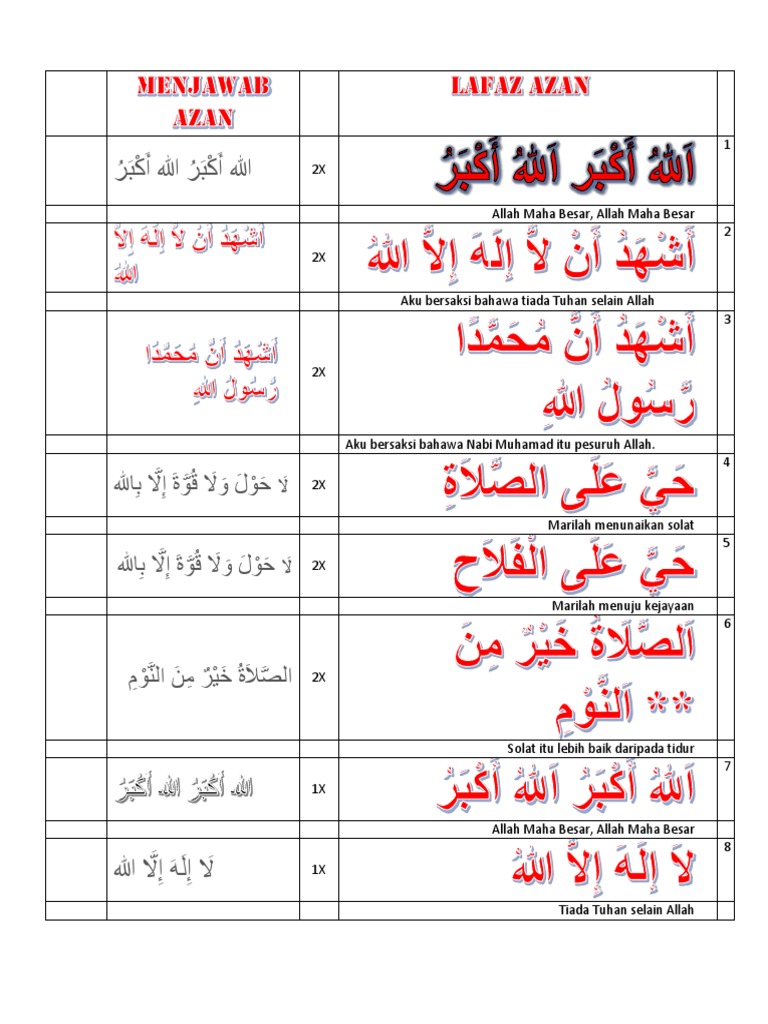 MENJAWAB
AZAN
LAFAZ AZAN
1
اَللهُ أَكْبَر اَللهُ أَكْبَرُ
2X
الله أَكْبَرُ الله أَكْبَرُ
Allah Maha Besar, Allah Maha Besar
2
أَشْهَدُ أَنْ لاَّ إِلَهَ إِلاَّ اللهُ
2X
أَشْهَدُ أَنْ لاَّ إِلَهَ إِلاَّ
اللهُ
Aku bersaksi bahawa tiada Tuhan selain Allah
3
أَشْهَدُ أَنَّ مُحَمَّدًا
رَّسُولُ اللهِ
2X
أَشْهَدُ أَنَّ مُحَمَّدًا
رَّسُولُ اللهِ
Aku bersaksi bahawa Nabi Muhamad itu pesuruh Allah.
4
حَيَّ عَلَى الصَّلاَةِ
2X
لَا حَوْلَ وَلَا قُوَّةَ إِلَّا بِالله
Marilah menunaikan solat
5
حَيَّ عَلَى الْفَلاَحِ
2X
لَا حَوْلَ وَلَا قُوَّةَ إِلَّا بِالله
Marilah menuju kejayaan
6
اَلصَّلَاةُ خَيْرٌ مِنَ
اَلنَّوْمِ **
2X
الصَّلاَةُ خَيْرٌ مِنَ النَّوْمِ
Solat itu lebih baik daripada tidur
7
اَللهُ أَكْبَرُ اَللهُ أَكْبَرُ
1X
الله أَكْبَرُ الله أَكْبَرُ
Allah Maha Besar, Allah Maha Besar
8
لاَ إِلَهَ إِلاَّ اللهُ
1X
لَا إِلَهَ إِلَّا الله
Tiada Tuhan selain Allah